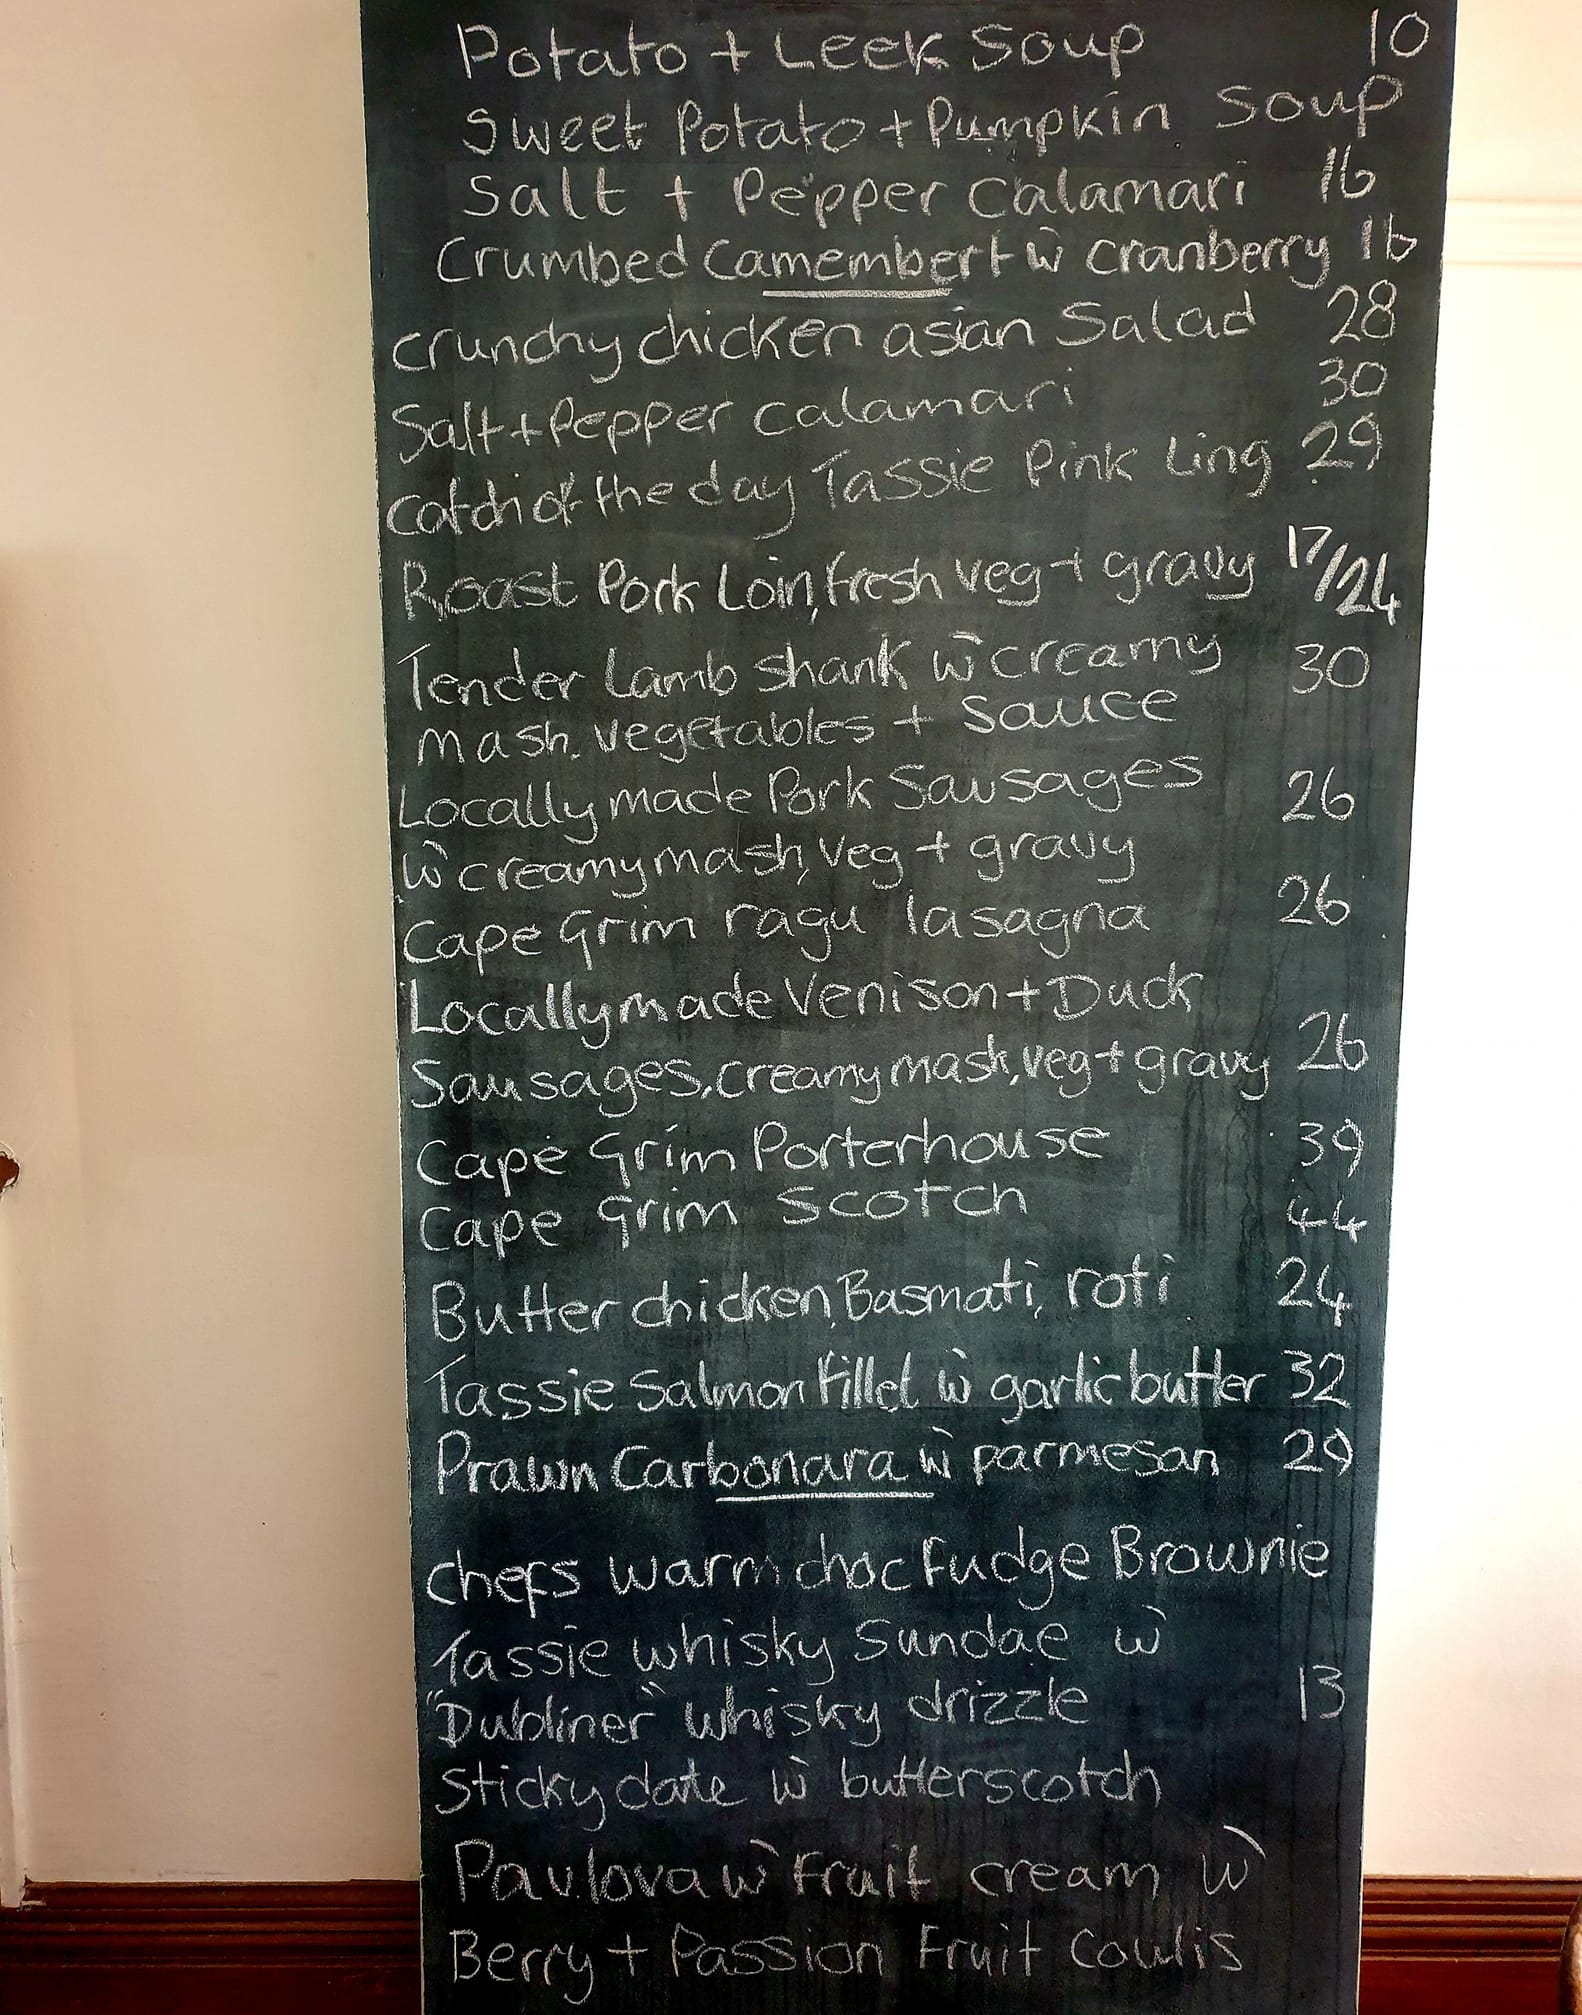 Potato + Leek Soup 10
Sweet Potato + Pumpkin Soup
Salt + Pepper Calamari 16
Crumbed Camembert w cranberry 16
crunchy chicken asian Salad 28
Salt + Pepper calamari 30
catch of the day Tassie Pink Ling 29
Roast Pork Loin, fresh veg + gravy 17/24
Tender Lamb Shank w creamy 30
mash. vegetables + sauce
Locally made Pork Sausages 26
w creamy mash, veg + gravy
Cape Grim ragu lasagna 26
Locally made Venison + Duck
Sausages, creamy mash, veg + gravy 26
Cape Grim Porterhouse 39
Cape Grim Scotch 44
Butter chicken, Basmati, roti 24
Tassie Salmon Fillet w garlic butter 32
Prawn Carbonara w parmesan 29
chefs warm choc Fudge Brownie
Tassie whisky Sundae w
"Dubliner" whisky drizzle 13
Sticky date w butterscotch
Pavlova w Fruit cream w
Berry + Passion Fruit Coulis